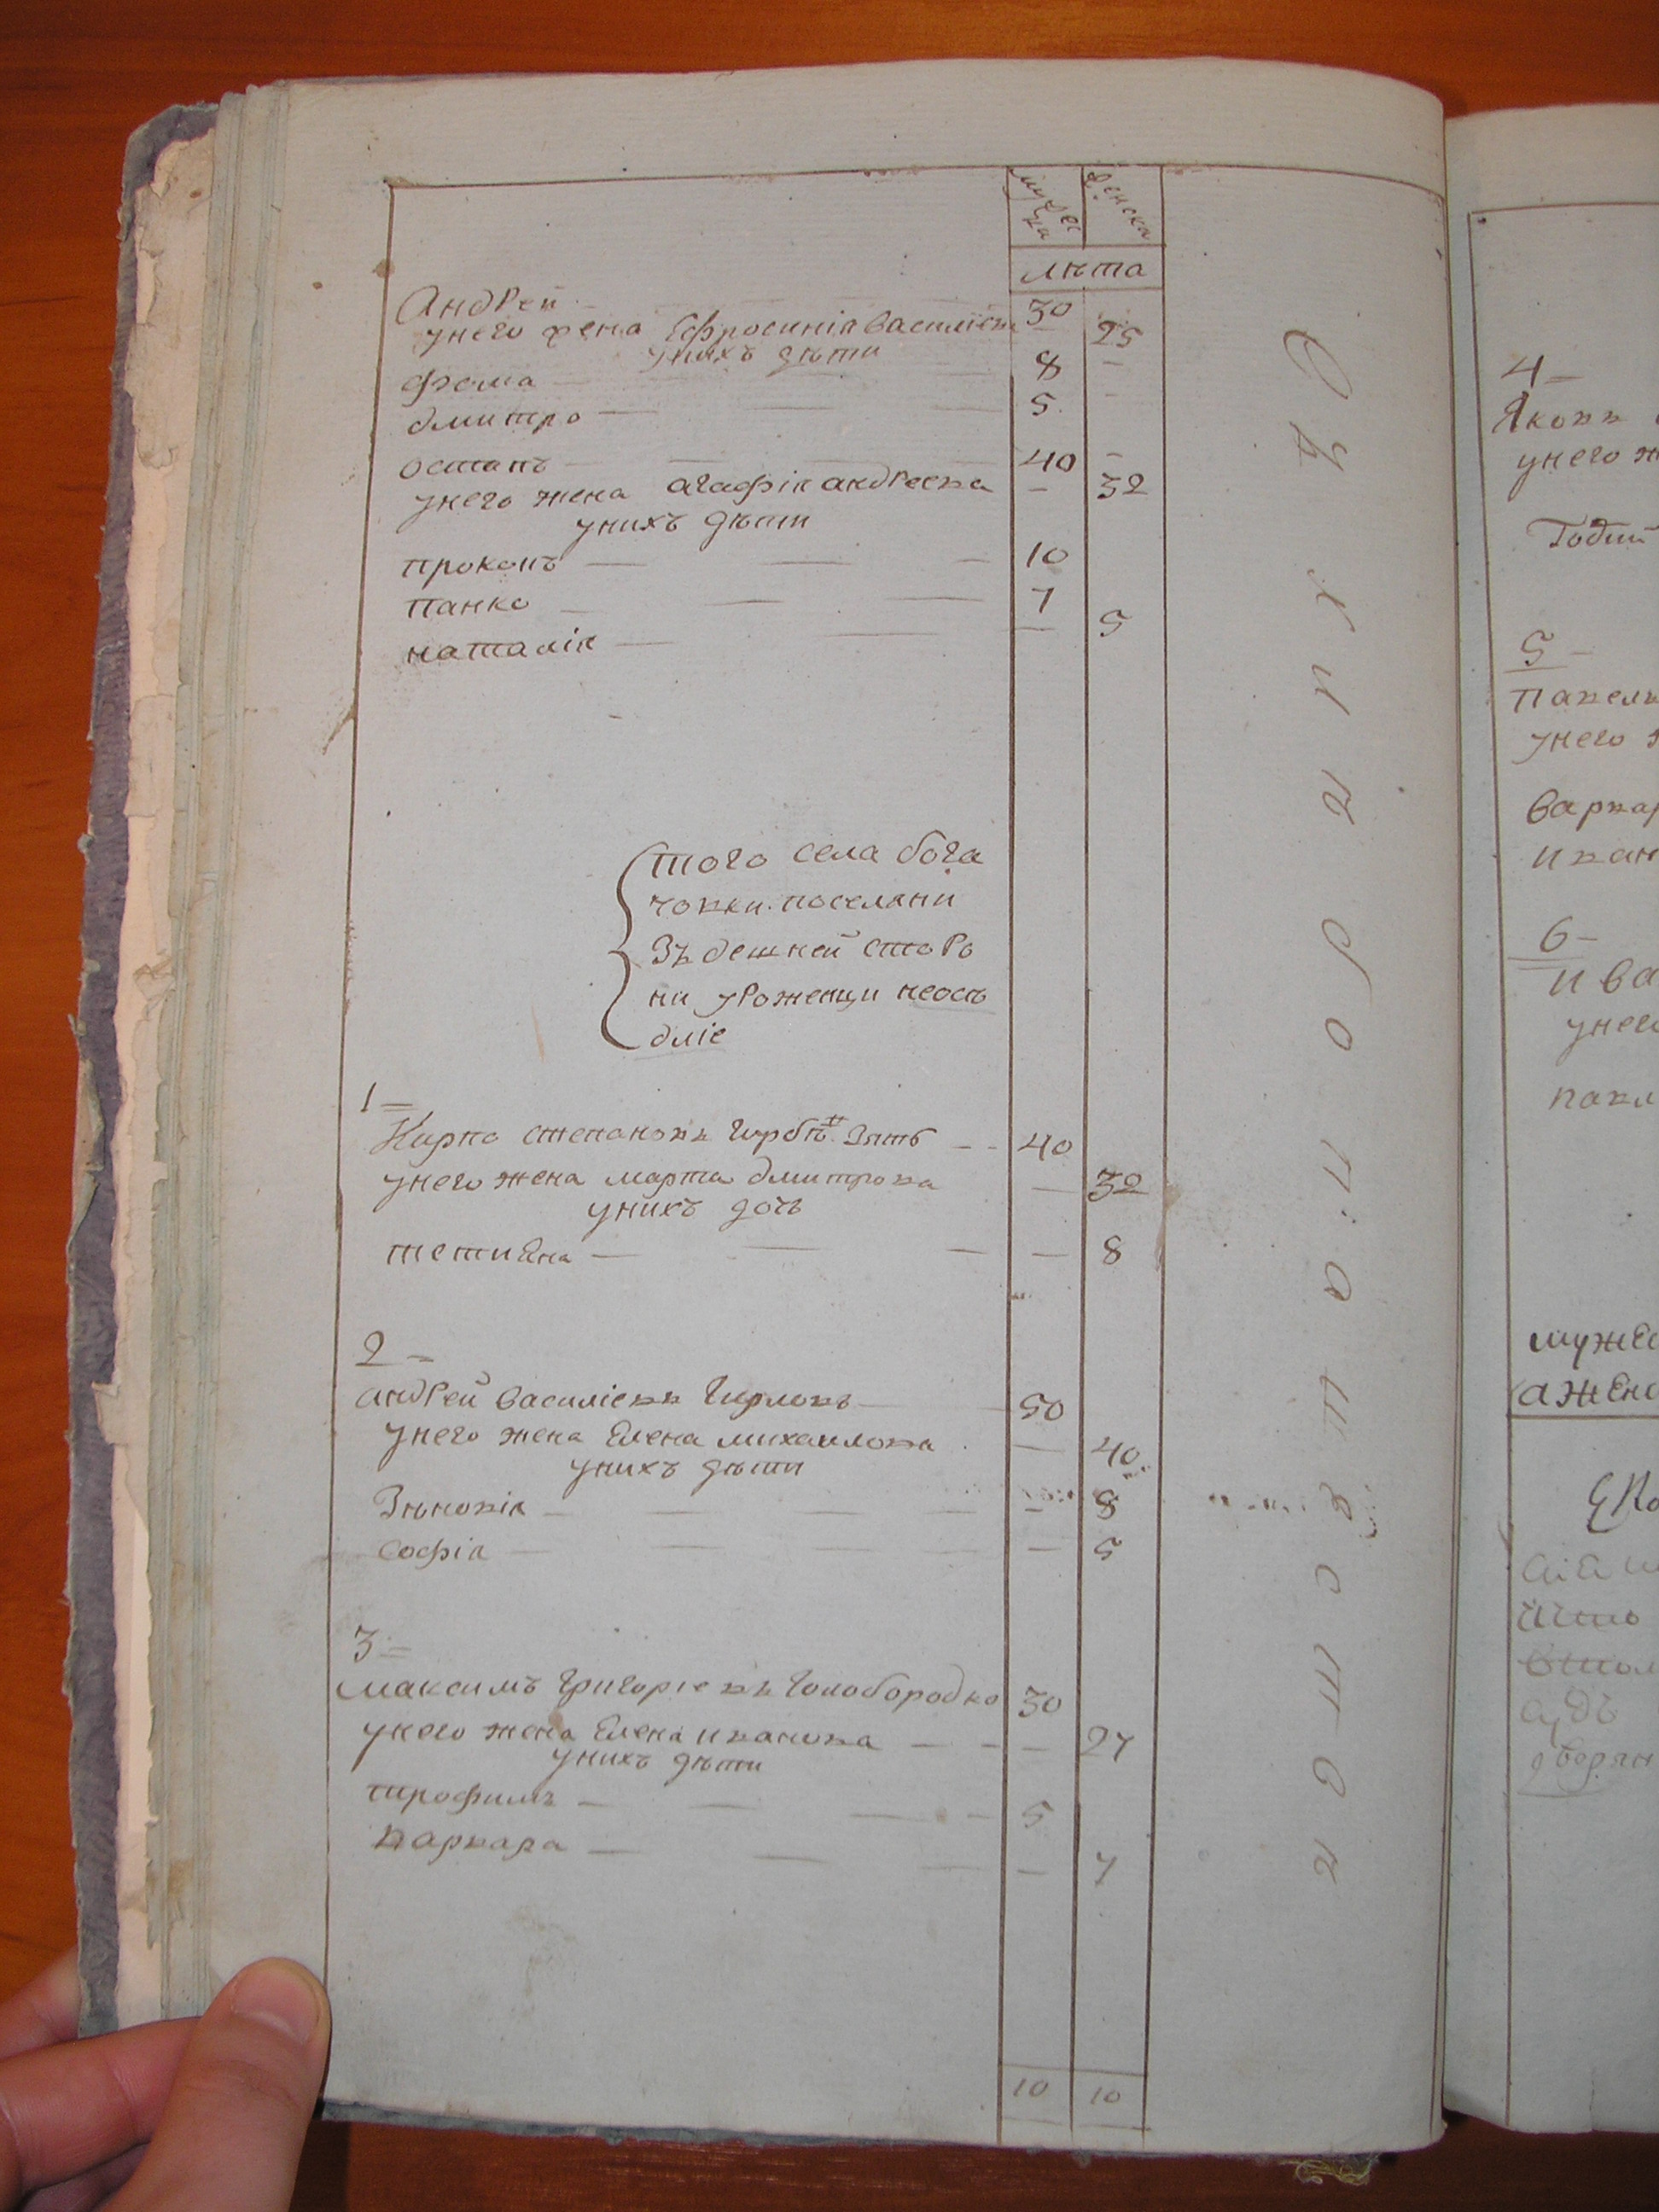 мужеска женска
лѣта
Андрей — 30
у него жена Ефросинія василіева — 25
у них дѣти
фома — 8 —
дмитро — 5
остапъ — 40 —
у него жена агафія андреева — 32
у нихъ дѣти
прокопъ — 10
панко — 7
наталія — 5
того села бога
човки поселяни
Здешней сторо
ни уроженци неосѣ
дліе
1
Карпо степановъ зять 40
у него жена марта дмитрова — 32
у нихъ дочь
тетиена — 8
2
андрей василіевъ 50
у него жена Елена михаилова — 40
у нихъ дѣти
Зѣновія — 8
софія — 5
3
максимъ григоріевъ голобородко 30
у него жена Елена иванова — 27
у нихъ дѣти
трофимъ — 5
варвара — 7
10 10
4
Яковъ
у него
5
павелъ
у него
варвар
иван
6
ива
у него
павл
мужес
а женс
судъ
дворян